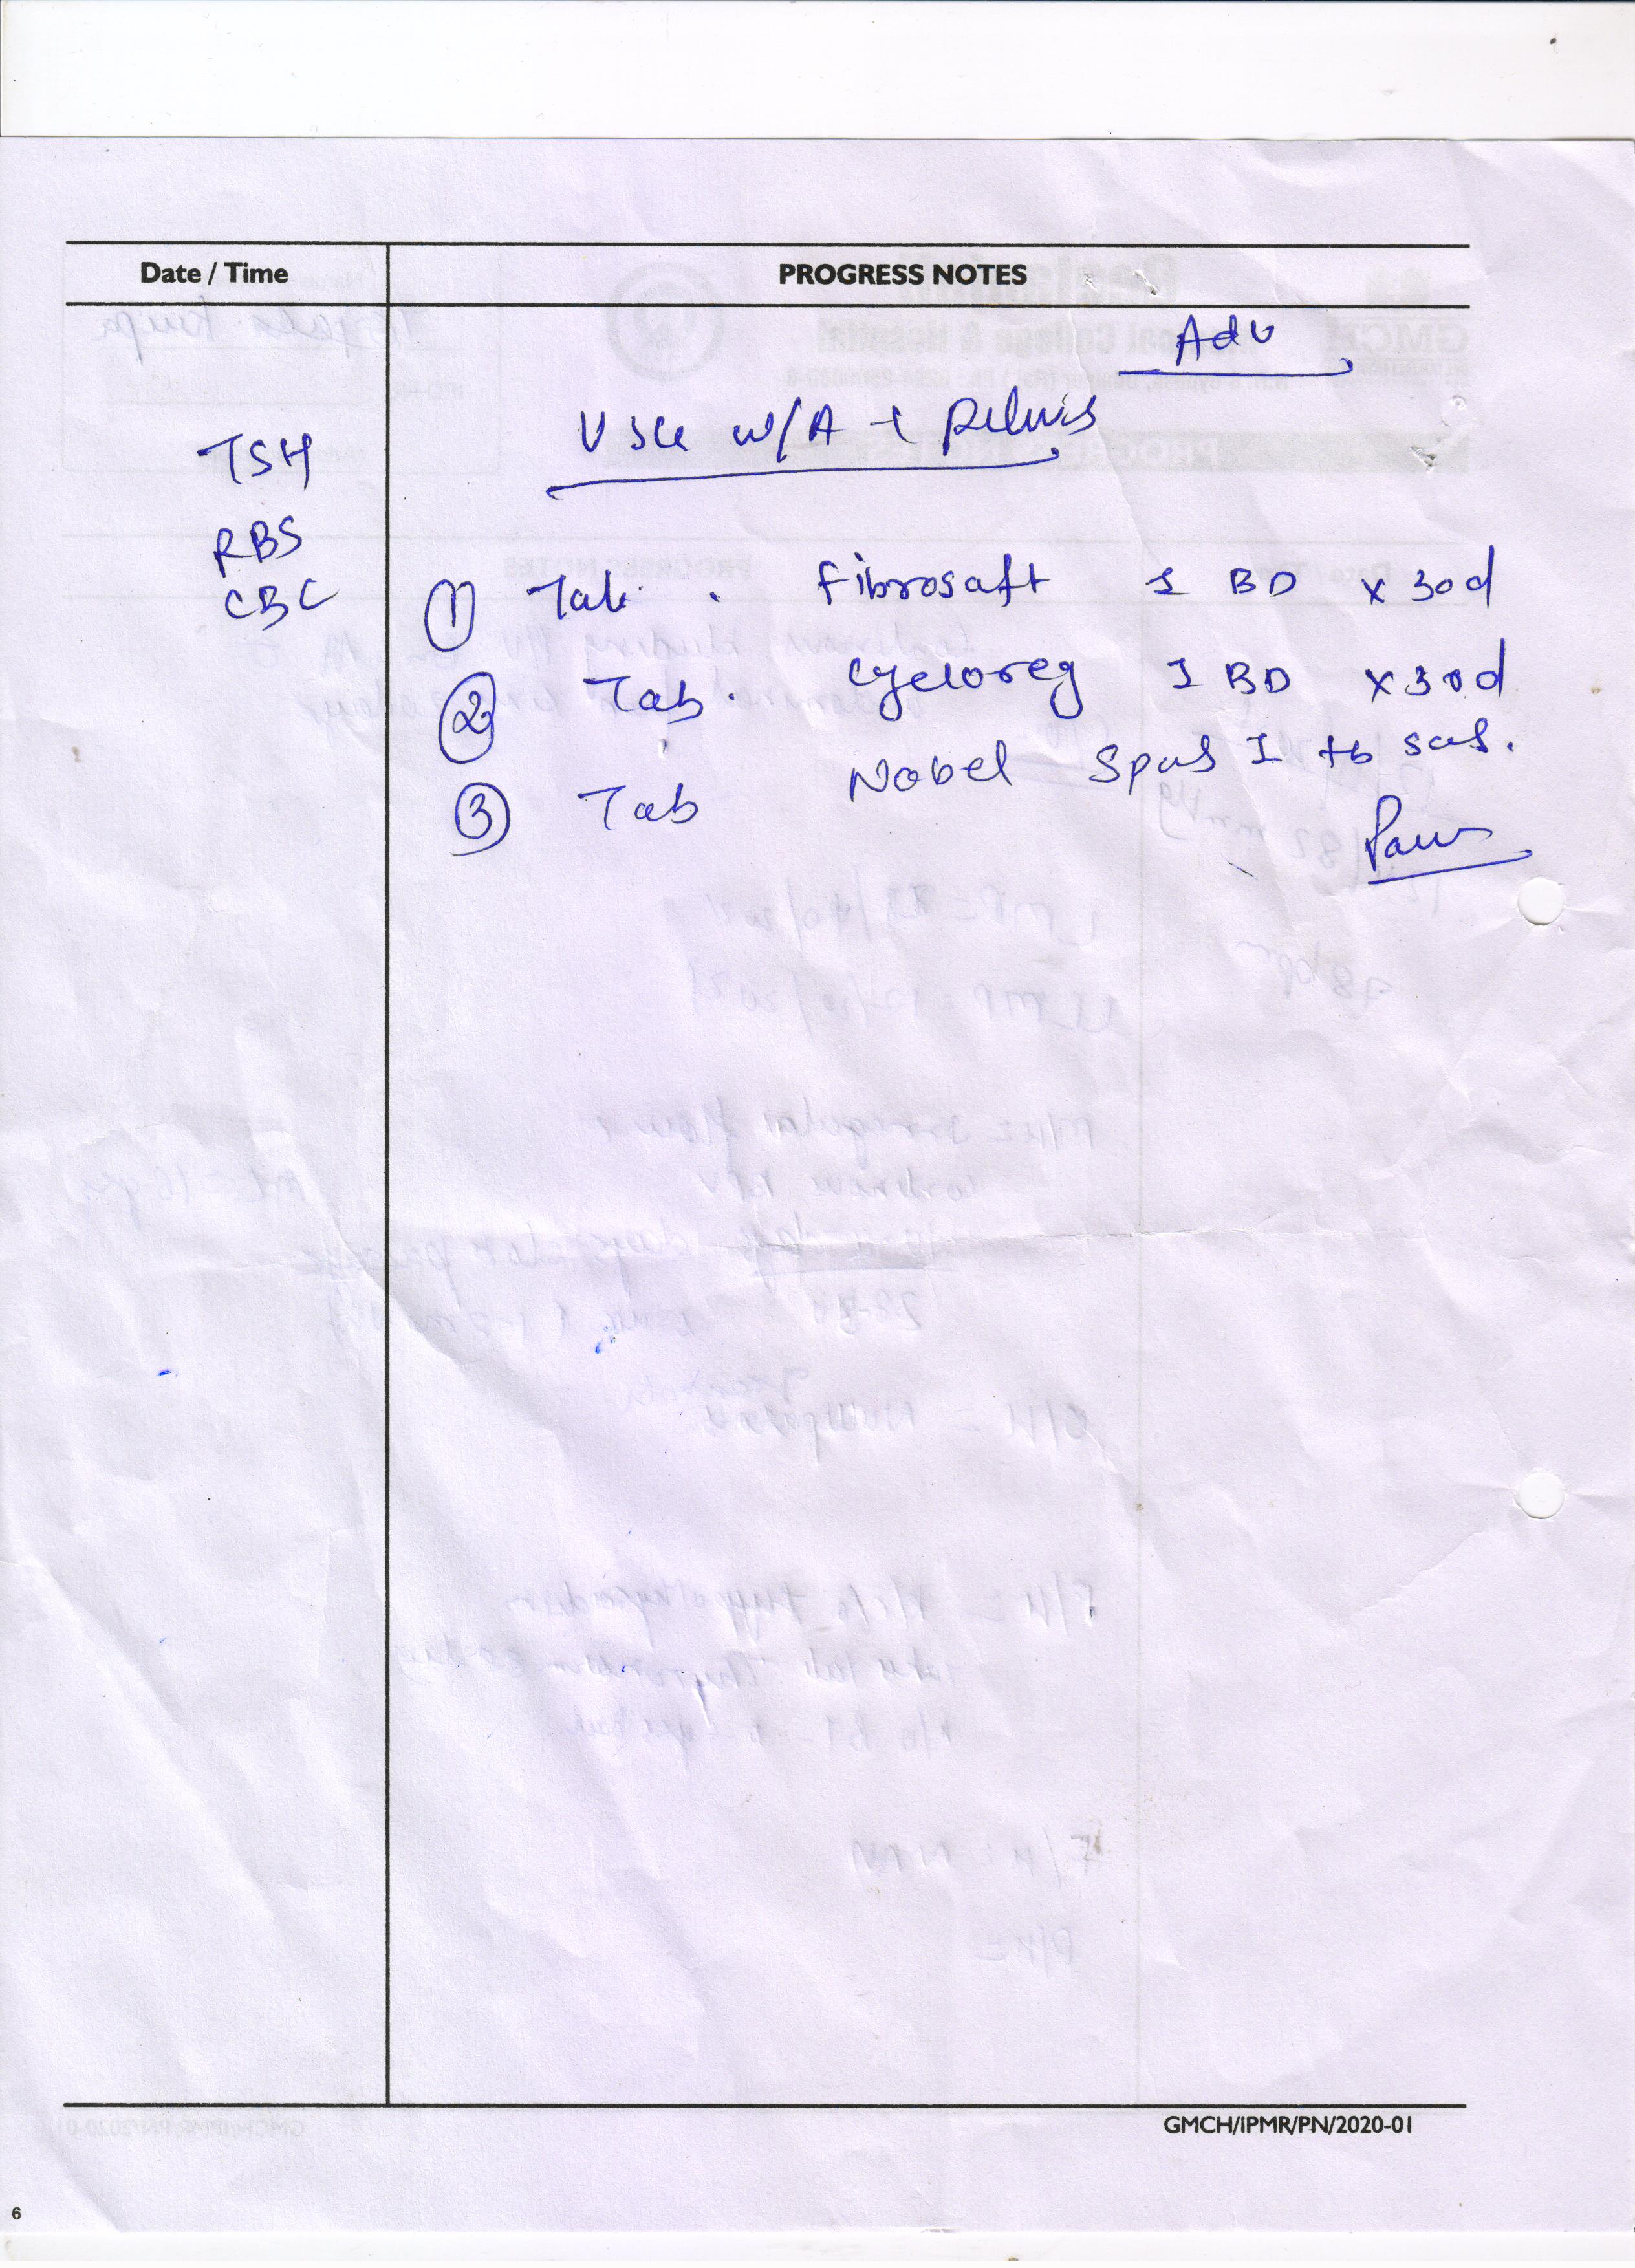 Date / Time
PROGRESS NOTES
Adv
USG W/A + Pelvis
TSH
RBS
CBC
① Tab. Fibrosoft 1 BD x 30d
② Tab. Cycloreg 1 BD x 30d
③ Tab Nobel Spas 1 tb sos.
GMCH/IPMR/PN/2020-01
6